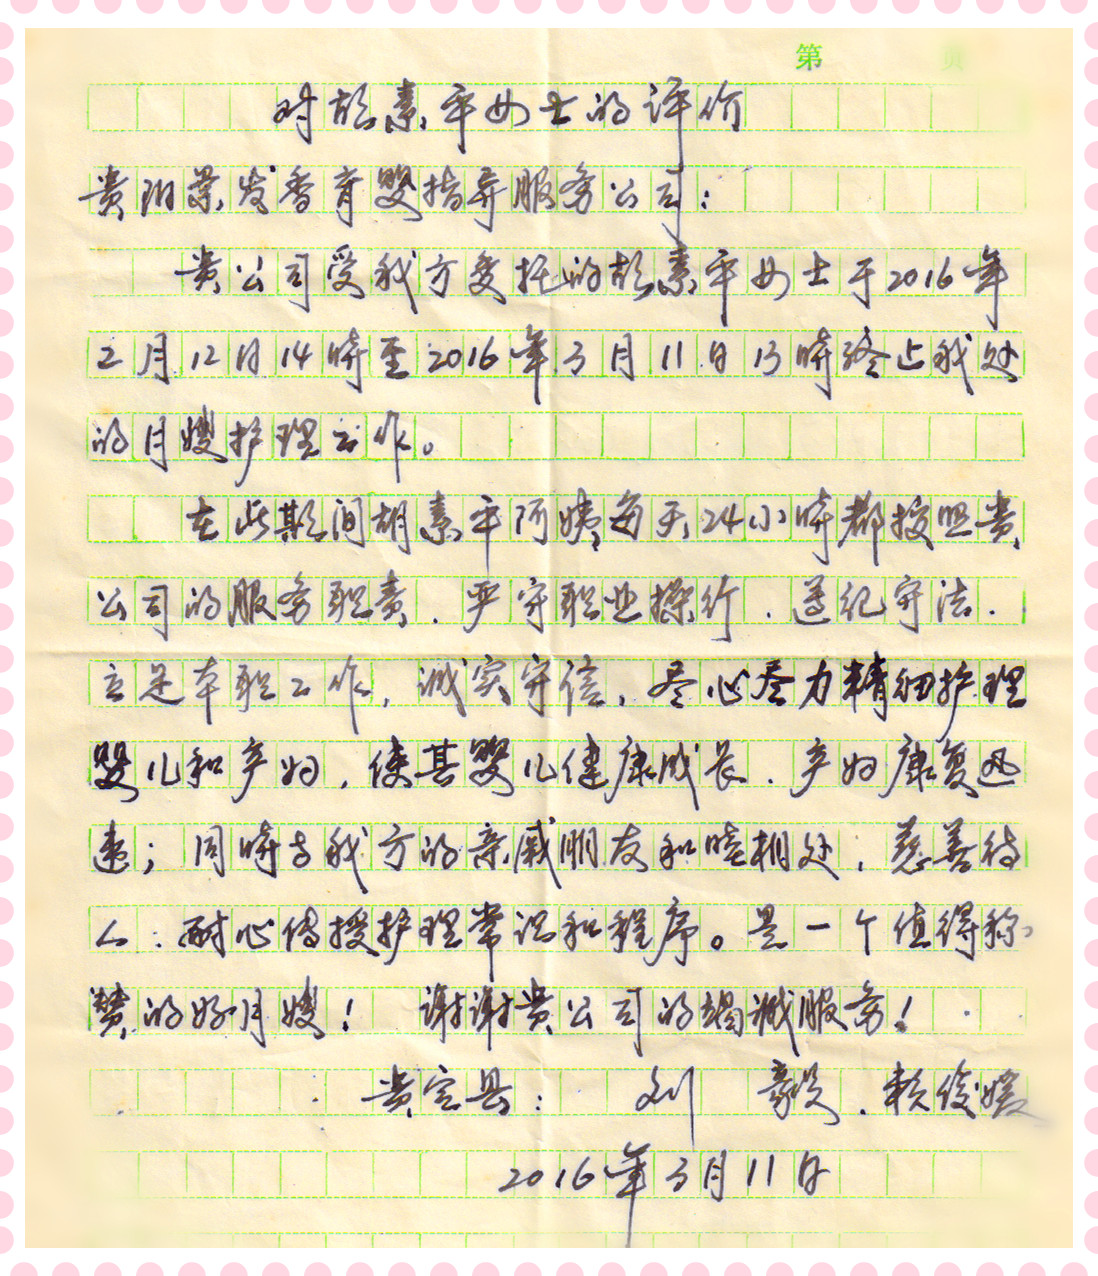 第 页
对胡素平女士的评价
贵阳景发香育婴指导服务公司：
贵公司受我方委托的胡素平女士于2016年
2月12日14时至2016年3月11日13时终止我处
的月嫂护理工作。
在此期间胡素平阿姨每天24小时都按照贵
公司的服务职责、严守职业操行、遵纪守法、
立足本职工作，诚实守信，尽心尽力精细护理
婴儿和产妇，使其婴儿健康成长、产妇康复迅
速；同时与我方的亲戚朋友和睦相处，慈善待
人、耐心传授护理常识和程序。是一个值得称
赞的好月嫂！ 谢谢贵公司的竭诚服务！
贵定县： 刘 毅、赖俊媛
2016年3月11日